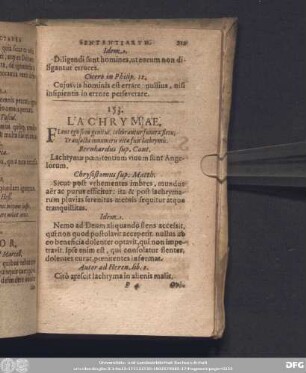 SENTENTIARUM.
Idem.
Diligendi sunt homines, ut eorum non di-
ligantur errores.
Cicero in Philip. 12.
Cujusvis hominis est errare, nullius, nisi
insipientis in errore perseverare.
153.
LACHRYMAE,
Transacta innumeris vita fuit lachrymis.
Bernhardus sup. Cant.
Lachrymæ pœnitentium vinum sunt Ange-
lorum.
Chrysostomus sup. Matth.
Sicut post vehementes imbres, mundus
aër ac purus efficitur: ita & post lachryma-
rum pluvias serenitas mentis sequitur atque
tranquillitas.
Idem.
Nemo ad Deum aliquando flens accessit,
qui non quod postulavit acceperit. nullus ab
eo beneficia dolenter optavit, qui non impe-
travit. Ipse enim est, qui consolatur flentes,
dolentes curat, pœnitentes informat.
Autor ad Heren. lib. 2.
Citò arescit lachryma in alienis malis.